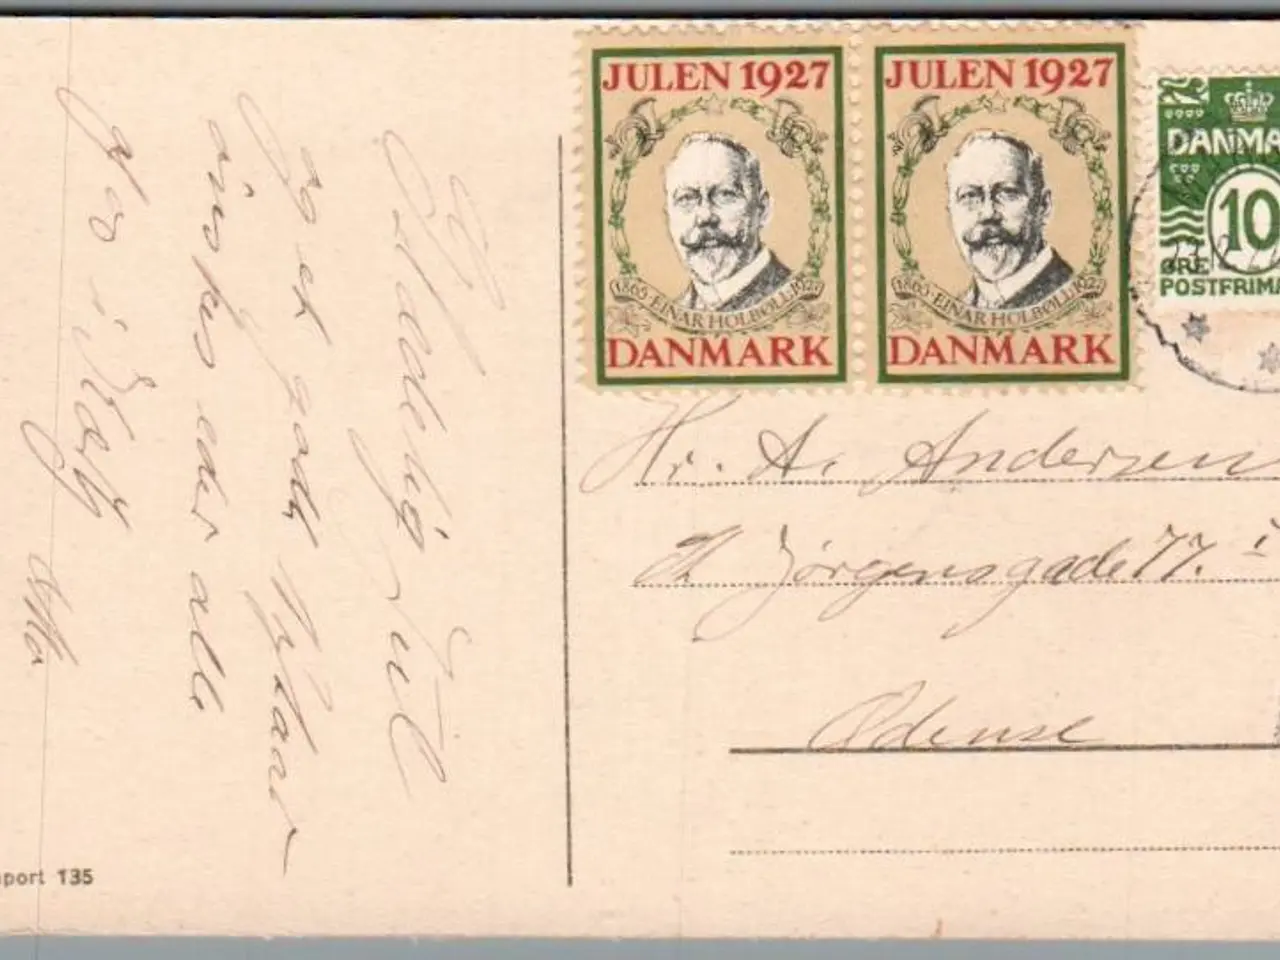 En Glædelig Jul
og et godt Nytaar
ønskes eder alle
JULEN 1927
1865·EINAR HOLBØLL·1927
DANMARK
JULEN 1927
1865·EINAR HOLBØLL·1927
DANMARK
DANMA
10
ØRE
POSTFRIMÆ
Hr. A. Andersen
Jørgensgade 77.
Odense
port 135